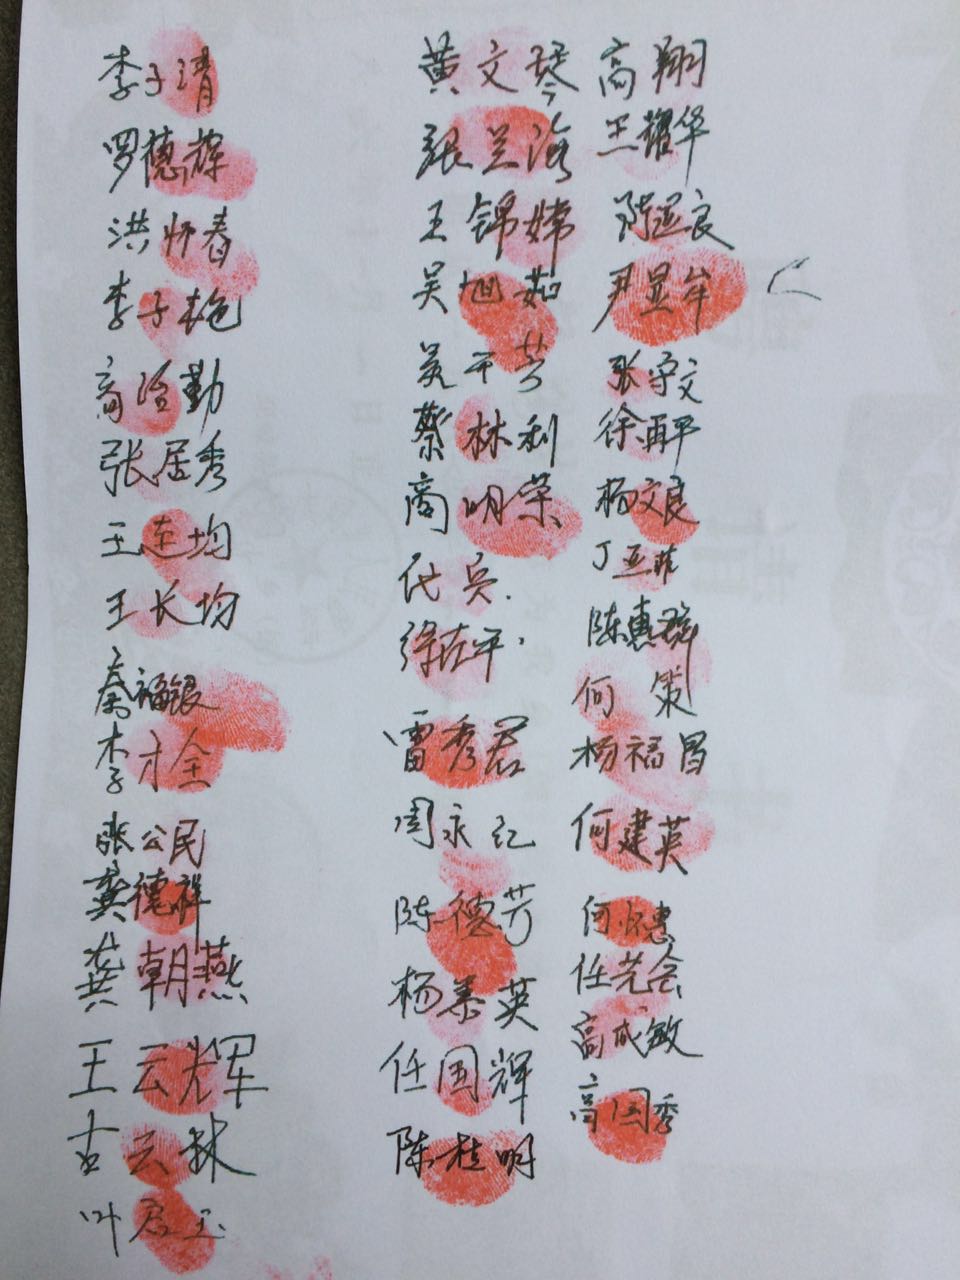 李子清
罗德辉
洪怀春
李子艳
高治勤
张居秀
王连均
王长均
秦福银
李才全
张公民
龚德祥
龚朝燕
王云辉
古云林
叶君玉
黄文琴
张兰海
王锦嫦
吴旭茹
吴干芬
蔡林利
商明荣
代兵.
徐在平.
雷秀君
周永红
陈德芳
杨素英
任国辉
陈桂明
高翔
王耀华
陈运良
尹显牟
张守文
徐再平
杨文良
丁亚菲
陈惠群
何策
杨福昌
何建英
何怀惠
任芝会
高成敏
高国秀